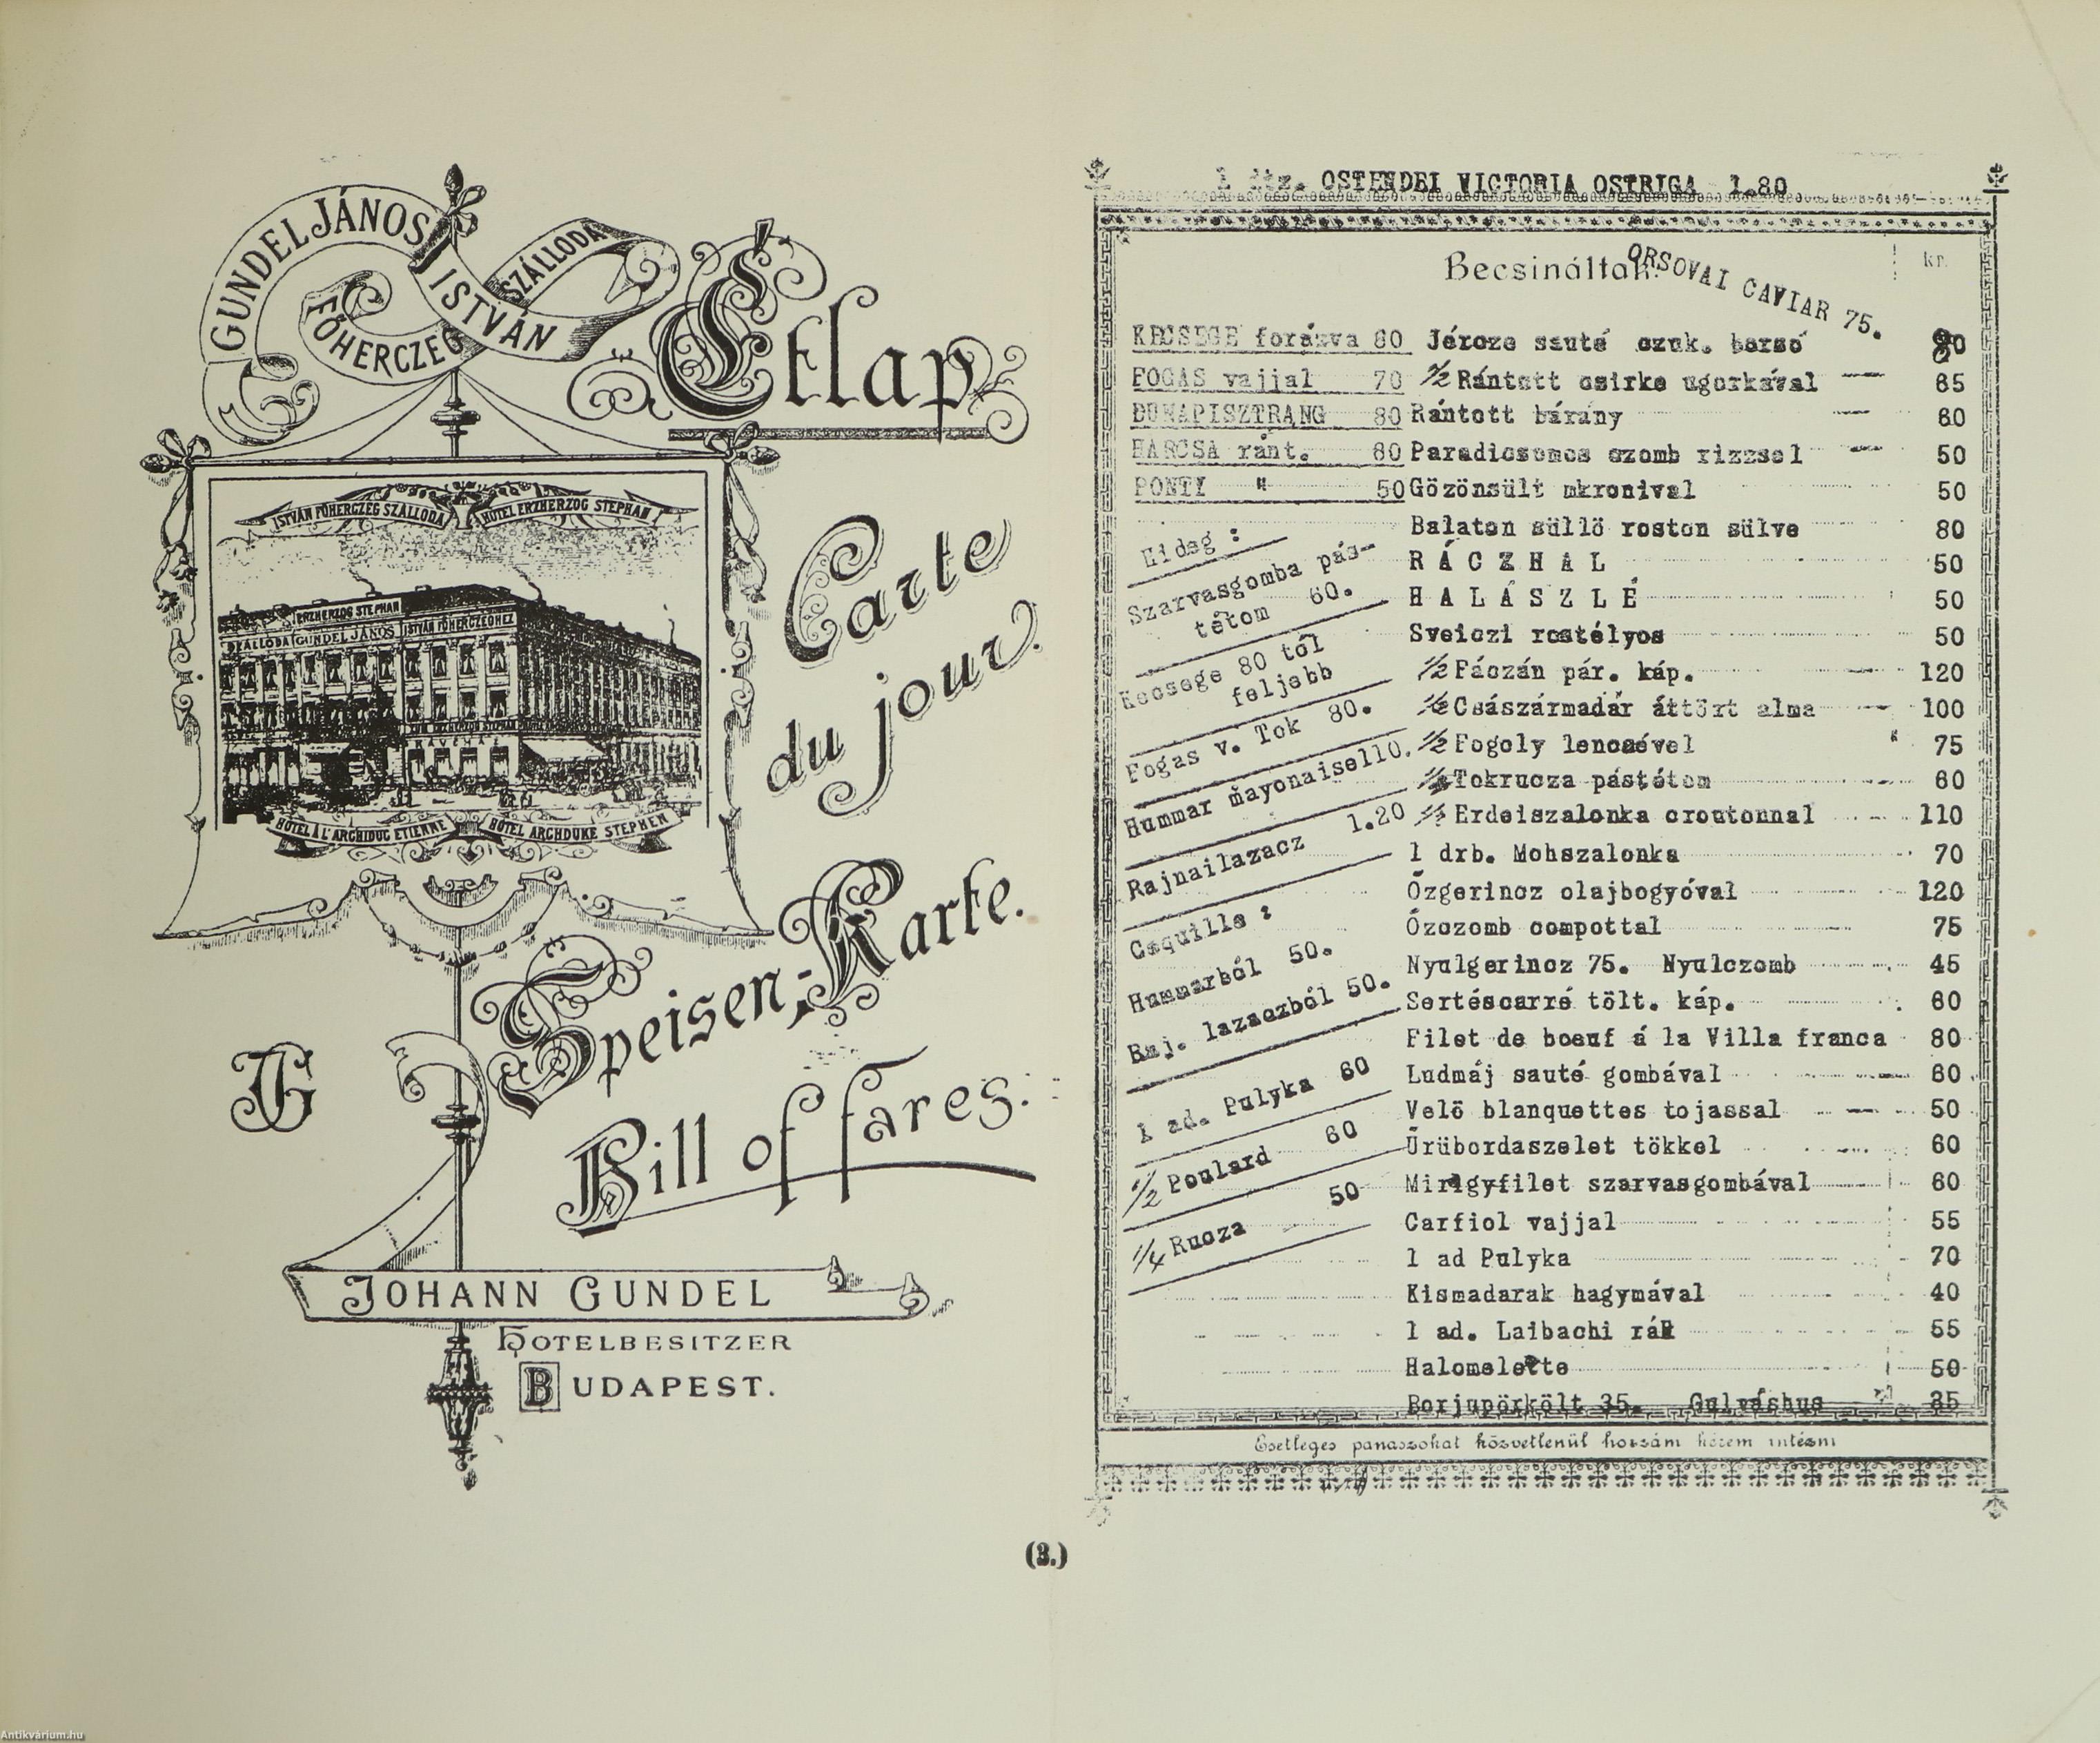 GUNDEL JÁNOS
ISTVÁN
FŐHERCZEG
SZÁLLODA
Étlap
ISTVÁN FŐHERCZEG SZÁLLODA
HOTEL ERZHERZOG STEPHAN
ERZHERZOG STEPHAN
SZÁLLODA GUNDEL JÁNOS ISTVÁN FŐHERCZEGHEZ
KÁVÉHÁZ
HÔTEL À L'ARCHIDUC ETIENNE
HÔTEL ARCHDUKE STEPHEN
Carte
du jour.
Speisen-Karte.
JG
Bill of fares.
JOHANN GUNDEL
HOTELBESITZER
BUDAPEST.
OSTENDEI VICTORIA OSTRIGA 1.80
Becsináltak
kr.
ORSOVAI CAVIAR 75.
KECSEGE forázva 80
FOGAS vajjal 70
DUNAPISZTRANG 80
HARCSA ránt. 60
PONTY " 50
Hideg :
Szarvasgomba pás-
tétom 60.
Kecsege 80 tól
feljebb
Fogas v. Tok 80.
Hummar mayonaise110.
Rajnailazacz 1.20
Coquille :
Hummarból 50.
Raj. lazaczból 50.
1 ad. Pulyka 60
1/2 Poulard 60
1/4 Rucza 50
Jércze sauté czuk. borsó
1/2 Rántott csirke ugorkával 65
Rántott bárány 60
Paradicsomos czomb rizzsel 50
Gözönsült mkronival 50
Balaton süllö roston sülve 80
RÁCZHAL 50
HALÁSZLÉ 50
Sveiczi rostélyos 50
1/2 Fáczán pár. káp. 120
1/2 Császármadár áttört alma 100
1/2 Fogoly lencsével 75
Tokrucza pástétom 60
Erdeiszalonka croutonnal 110
1 drb. Mohszalonka 70
Őzgerincz olajbogyóval 120
Őzczomb compottal 75
Nyulgerincz 75. Nyulczomb 45
Sertéscarré tölt. káp. 60
Filet de boeuf á la Villa franca 80
Ludmáj sauté gombával 60
Velö blanquettes tojassal 50
Ürübordaszelet tökkel 60
Mirigyfilet szarvasgombával 60
Carfiol vajjal 55
1 ad Pulyka 70
Kismadarak hagymával 40
1 ad. Laibachi rák 55
Halomelette 50
Borjupörkölt 35. Gulyáshus 35
Esetleges panaszokat közvetlenül hozzám kérem intézni
(3.)
Antikvárium.hu